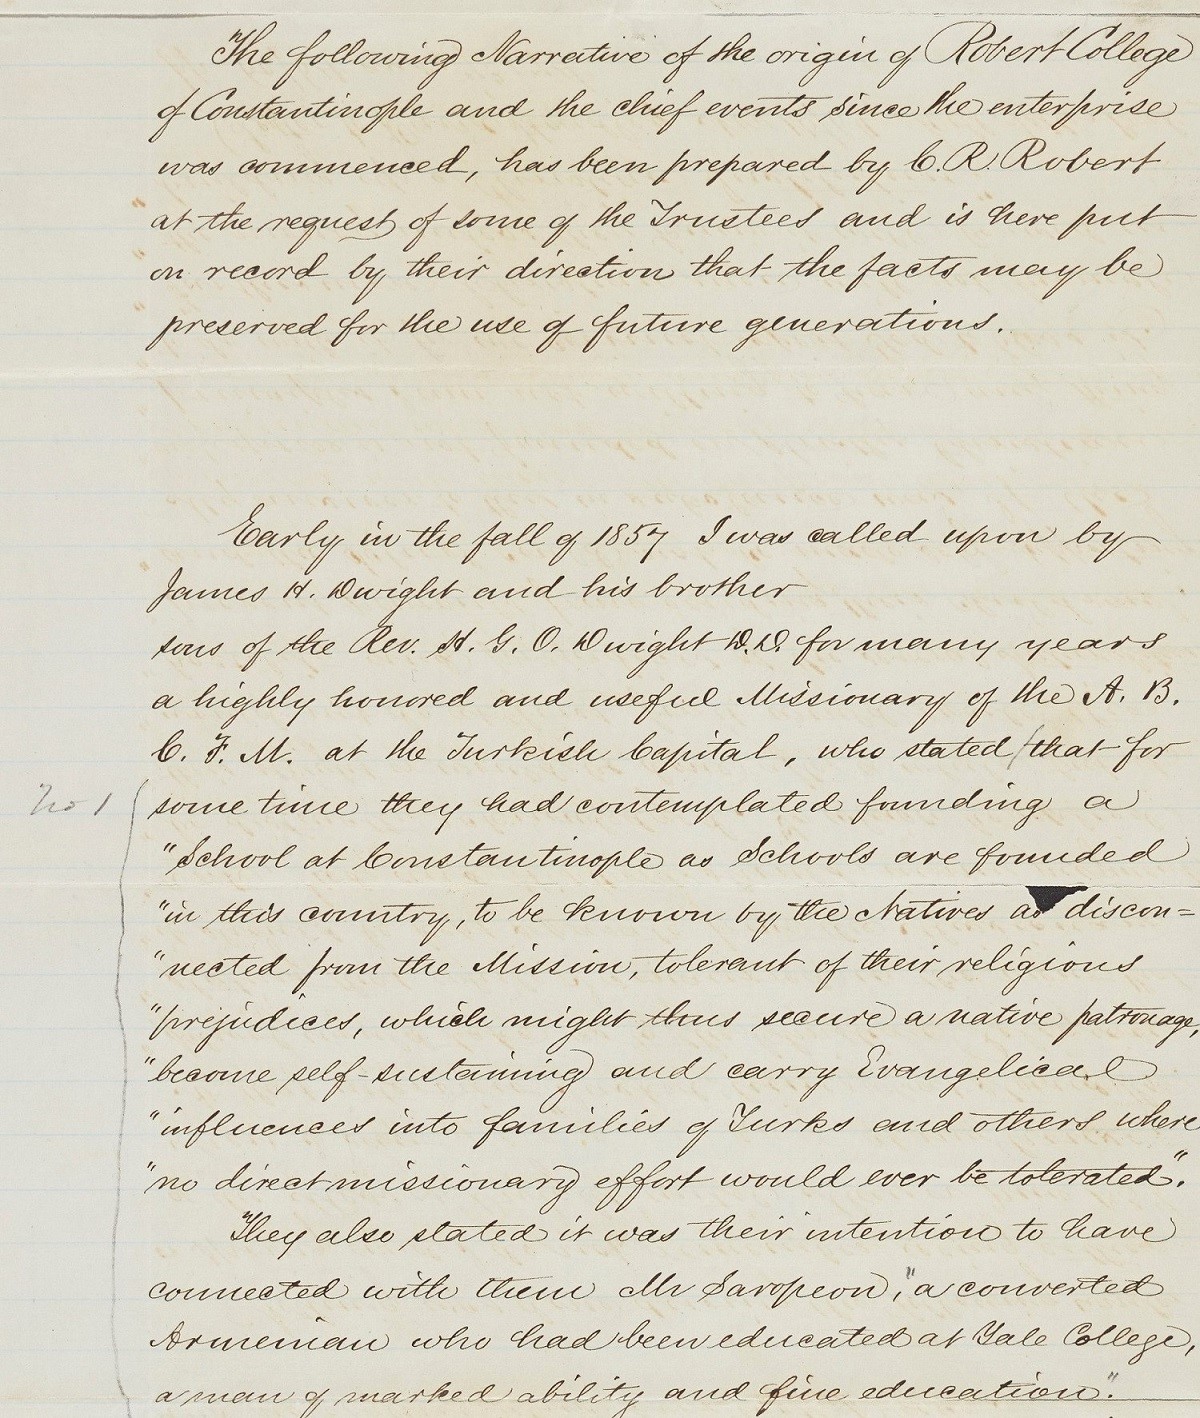 The following Narrative of the origin of Robert College
of Constantinople and the chief events since the enterprise
was commenced, has been prepared by C. R. Robert
at the request of some of the Trustees and is here put
on record by their direction that the facts may be
preserved for the use of future generations.
Early in the fall of 1857 I was called upon by
James H. Dwight and his brother
sons of the Rev. H. G. O. Dwight D.D. for many years
a highly honored and useful Missionary of the A. B.
C. F. M. at the Turkish Capital, who stated (that for
No 1
some time they had contemplated founding a
"School at Constantinople as Schools are founded
"in this country, to be known by the Natives as discon=
"nected from the Mission, tolerant of their religious
"prejudices, which might thus secure a native patronage,
"become self-sustaining and carry Evangelical
"influences into families of Turks and others where
"no direct missionary effort would ever be tolerated".
They also stated it was their intention to have
connected with them Mr Saropeon, "a converted
Armenian who had been educated at Yale College,
a man of marked ability and fine education".